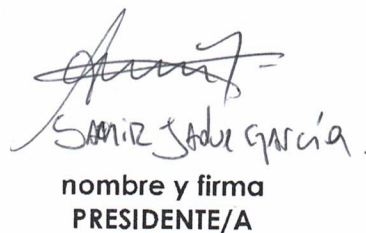 SAMIR JADUE GARCÍA.
nombre y firma
PRESIDENTE/A